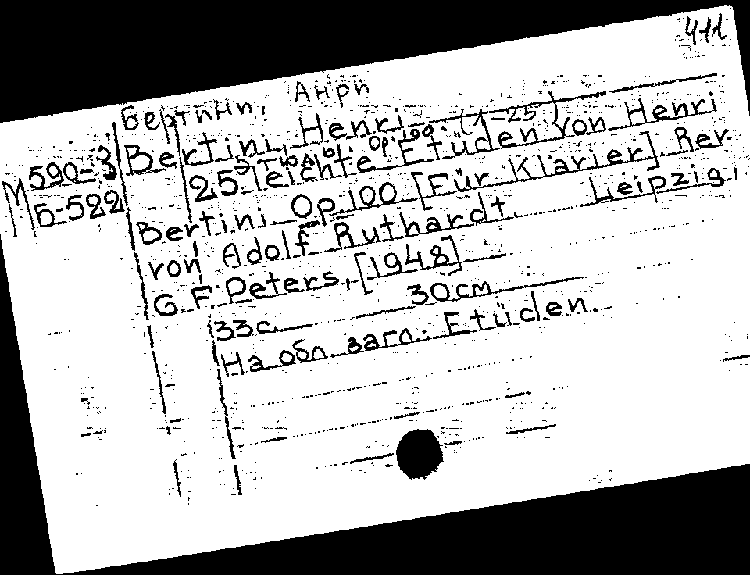 411
Бертини, Анри
Bertini, Henri
Op. 100. (1-25)
М 590-3
Б-522
25 leichte Etüden von Henri
Bertini Op 100 [Für Klavier] Rev.
von Adolf Ruthardt. Leipzig,
G. F. Peters, [1948]
33 с. 30 см
На обл. загл.: Etüden.